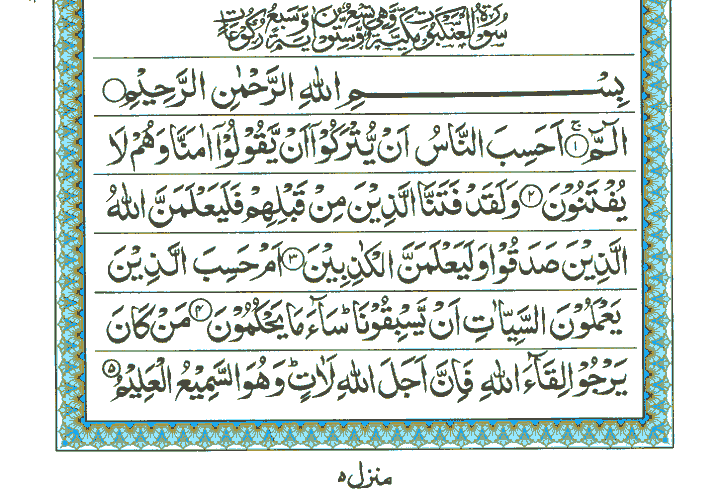 سُوْرَةُ الْعَنْكَبُوْتِ مَكِّيَّةٌ وَّهِيَ تِسْعٌ وَّسِتُّوْنَ اٰيَةً وَّسَبْعُ رُكُوْعَاتٍ
بِسْمِ اللّٰهِ الرَّحْمٰنِ الرَّحِيْمِ
الٓمّٓ ۚ﴿۱﴾ اَحَسِبَ النَّاسُ اَنْ يُّتْرَكُوْۤا اَنْ يَّقُوْلُوْۤا اٰمَنَّا وَهُمْ لَا
يُفْتَنُوْنَ ﴿۲﴾ وَلَقَدْ فَتَنَّا الَّذِيْنَ مِنْ قَبْلِهِمْ فَلَيَعْلَمَنَّ اللّٰهُ
الَّذِيْنَ صَدَقُوْا وَلَيَعْلَمَنَّ الْكٰذِبِيْنَ ﴿۳﴾ اَمْ حَسِبَ الَّذِيْنَ
يَعْمَلُوْنَ السَّيِّاٰتِ اَنْ يَّسْبِقُوْنَا ؕ سَآءَ مَا يَحْكُمُوْنَ ﴿۴﴾ مَنْ كَانَ
يَرْجُوْا لِقَآءَ اللّٰهِ فَاِنَّ اَجَلَ اللّٰهِ لَاٰتٍ ؕ وَهُوَ السَّمِيْعُ الْعَلِيْمُ ﴿۵﴾
منزل ۵